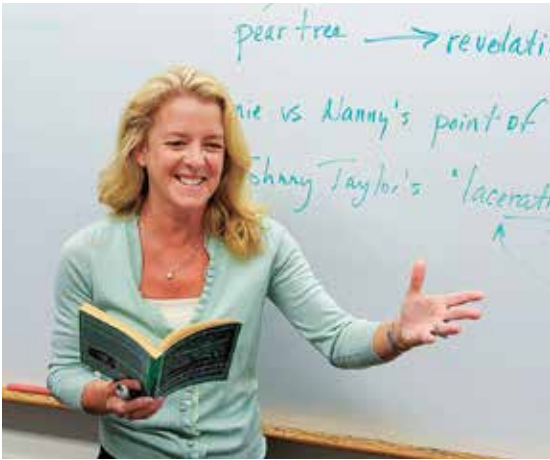 pear tree → revelati
nie vs Nanny's point of
Johnny Taylor's "lacerati